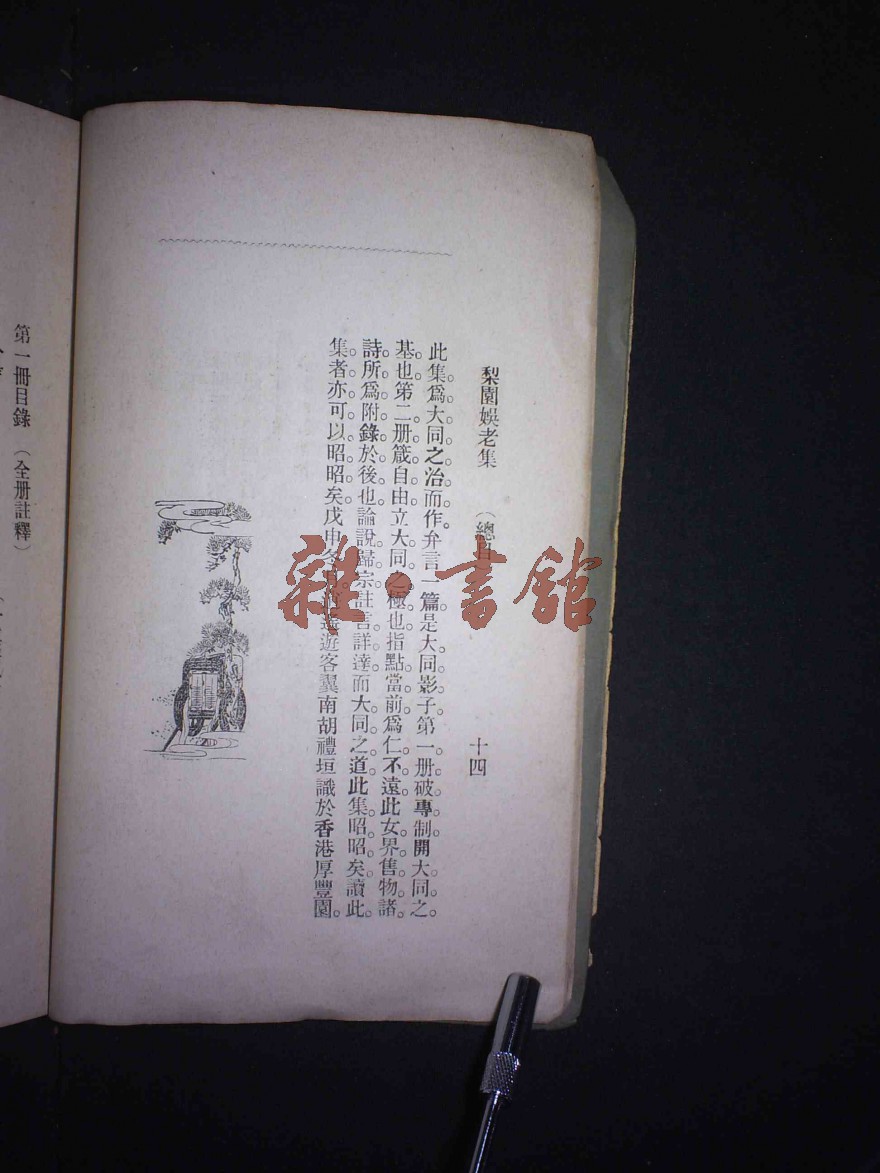 梨園娛老集 (總目) 十四
此集爲大同之治而作弁言一篇是大同影子第一册破專制開大同之
基也第二册箴自由立大同之極也指點當前爲仁不遠此女界售物諸
詩所爲附錄於後也論說歸宗註言詳達而大同之道此集昭昭矣讀此
集者亦可以昭昭矣戊申冬遊客翼南胡禮垣識於香港厚豐園
第一冊目錄 (全册註釋)
雜·書館